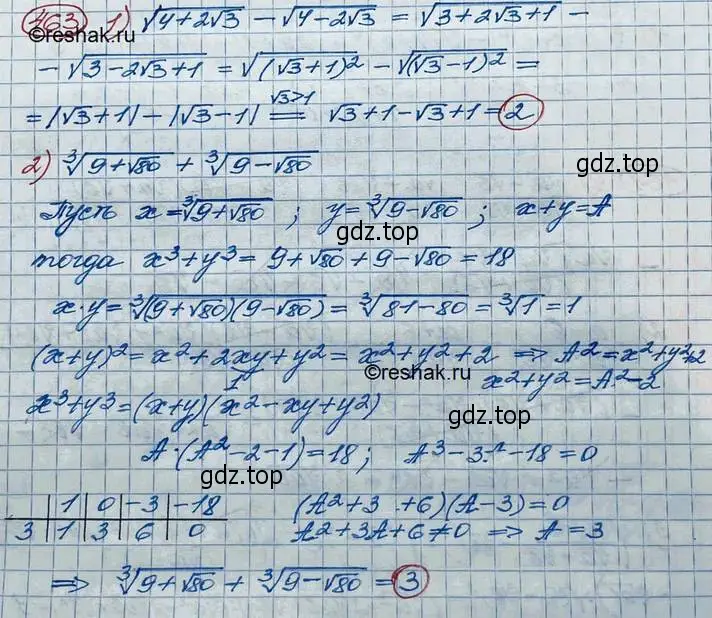 463 1) √(4+2√3) − √(4−2√3) = √(3+2√3+1) −
©reshak.ru
− √(3−2√3+1) = √((√3+1)²) − √((√3−1)²) =
= |√3+1| − |√3−1| =(√3>1)= √3+1−√3+1 = 2
2) ∛(9+√80) + ∛(9−√80)
gdz.top
Пусть x = ∛(9+√80) ; y = ∛(9−√80) ; x+y=A
gdz.top
тогда x³+y³ = 9+√80+9−√80 = 18
x·y = ∛((9+√80)(9−√80)) = ∛(81−80) = ∛1 = 1
(x+y)² = x²+2xy+y² = x²+y²+2 ⇒ A²=x²+y²+2
1 ©reshak.ru x²+y²=A²−2
x³+y³=(x+y)(x²−xy+y²)
gdz.top
A·(A²−2−1)=18; A³−3A−18=0
gdz.top
1 0 −3 −18 (A²+3 +6)(A−3)=0
3 1 3 6 0 A²+3A+6≠0 ⇒ A=3
⇒ ∛(9+√80) + ∛(9−√80) = 3
gdz.top